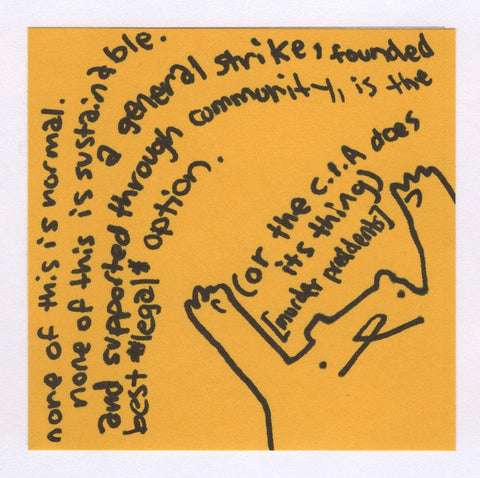 none of this is normal.
none of this is sustainable.
a general strike, founded
and supported through community, is the
best *legal* option.
(or the C.I.A does
its thing)
[murder presidents]